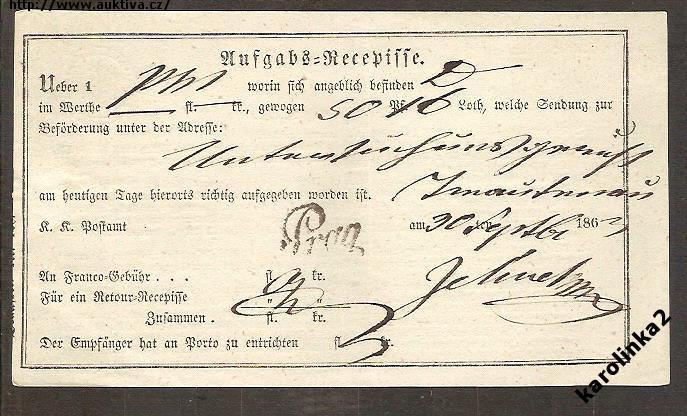 http://www.auktiva.cz/
Aufgabs-Recepisse.
Ueber 1 worin sich angeblich befinden D
im Werthe — fl. — kr., gewogen Pf. Loth, welche Sendung zur
Beförderung unter der Adresse:
Untersuchungsgericht
am heutigen Tage hierorts richtig aufgegeben worden ist. Trautenau
K. K. Postamt Prag am 30 Septbr 186
An Franco-Gebühr . . . fl. kr.
Für ein Retour-Recepisse " "
Zusammen . fl. kr.
Der Empfänger hat an Porto zu entrichten fl. kr.
karolinka2